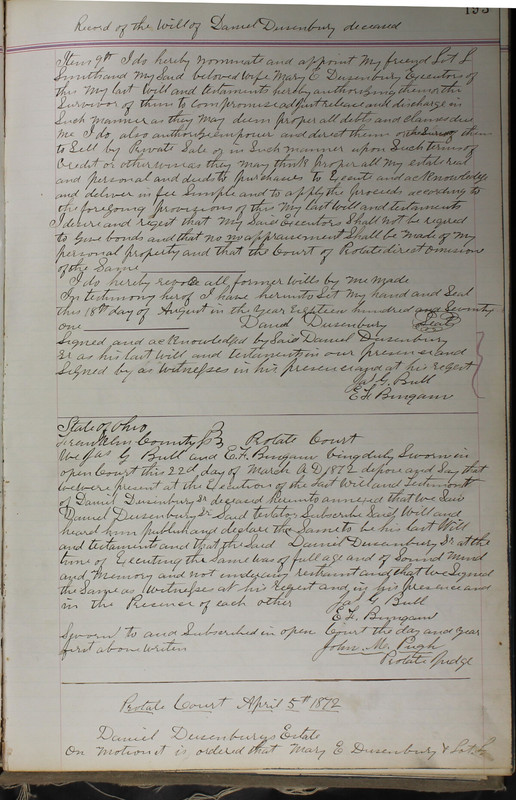 193
Record of the Will of Daniel Dusenbury deceased
Item 9th I do hereby nominate and appoint my friend Lot L
Smith and my said beloved wife Mary E Dusenbury Executors of
this my last will and testaments hereby authorising them or the
Survivor of them to compromise adjust release and discharge in
Such manner as they may deem proper all debts and claims due
me I do also authorise empower and direct them or the Survivor of them
to Sell by Private Sale or in Such manner upon Such terms of
Credit or otherwise as they may think proper all my estate real
and personal and deeds to purchasers to Execute and acknowledge
and deliver in fee Simple and to apply the proceeds according to
the foregoing provisions of this my last will and testaments
I desire and regest that my Said Executors Shall not be reqired
to give bonds and that no appraisment Shall be made of my
personal property and that the Court of Probate direct omission
of the Same
I do hereby revoke all former Wills by me made
In testimony herof I have herunto Set my hand and Seal
this 18th day of August in the Year Eighteen hundred and Seventy
one Daniel Dusenbury Seal
Signed and acknowledged by Said Daniel Dusenbury
Sr as his last Will and testament in our presence and
Signed by as Witnesses in his presence and at his regest
Jas G. Bull
E. F. Bingam
State of Ohio
Franklin County SS Probate Court
We Jas G Bull and E. F. Bingam being duly Sworn in
open Court this 22d day of March A D 1872 depose and Say that
we were present at the Execution of the Last Will and Testament
of Daniel Dusenbury Sr deceased hereunto annexed that we Saw
Daniel Dusenbury Sr Said testator Subscribe Said Will and
heard him publish and declare the Same to be his last Will
and testament and that the Said Daniel Dusenbury Sr at the
time of Executing the Same was of full age and of Sound mind
and Memory and not under any restraint and that we Signed
the Same as Witnesses at his regest and in his presence and
in the Presence of each other Jas G Bull
E. F. Bingam
Sworn to and Subscribed in open Court the day and year
first above Writen John M. Pugh
Probate Judge
Probate Court April 5th 1872
Daniel Dusenburys Estate
On motion it is ordered that Mary E Dusenbury & Lot L